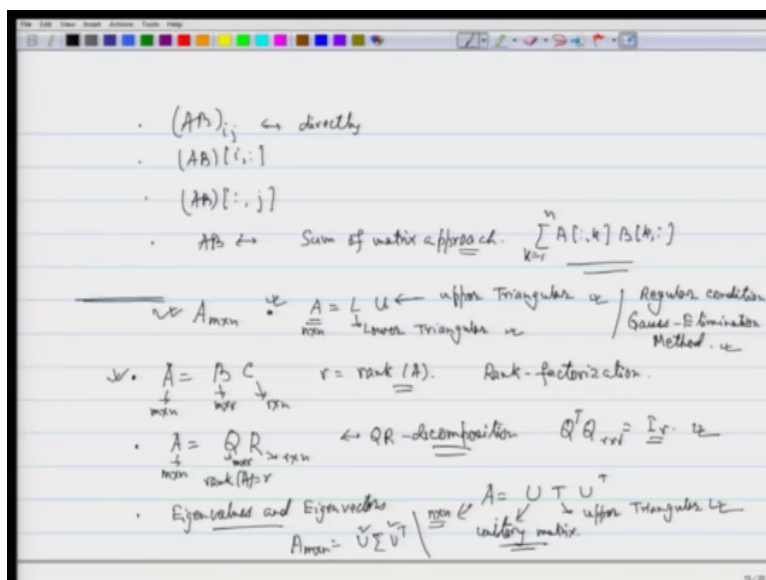 File Edit View Insert Actions Tools Help
B I
• (AB)ij ↔ directly
• (AB)[i,:]
• (AB)[:,j]
• AB ↔ Sum of matrix approach. ∑ₖ₌₁ⁿ A[:,k] B[k,:]
A m×n • A = L U ← upper Triangular / Regular condition
n×n Lower Triangular Gauss-Elimination
Method.
• A = B C r = rank(A). Rank-factorization.
m×n m×r r×n
• A = Q R ↔ QR-discomposition QᵀQ r×r = Iᵣ.
m×n m×r r×n
rank(A)=r
• Eigenvalues and Eigenvectors n×n A = U T Uᵀ
upper Triangular
A m×n = U Σ Vᵀ unitary matrix.